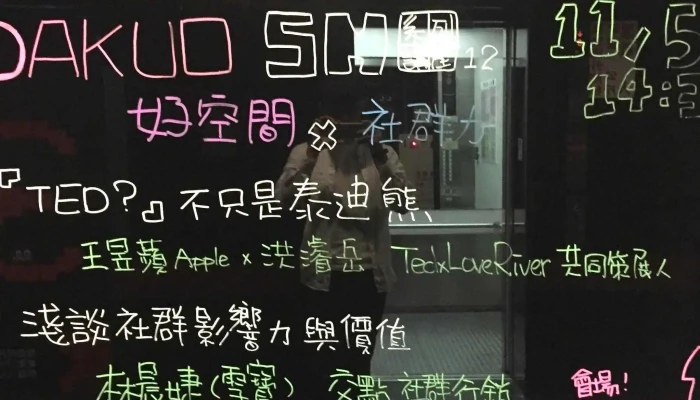 DAKUO SM 系列 12 11/5
好空間 × 社群力 14:3
『TED?』不只是泰迪熊
王昱蘋 Apple × 洪濬岳 TedxLoveRiver 共同策展人
淺談社群影響力與價值
林晨婕(雪寶) 交點 社群行銷 會場!